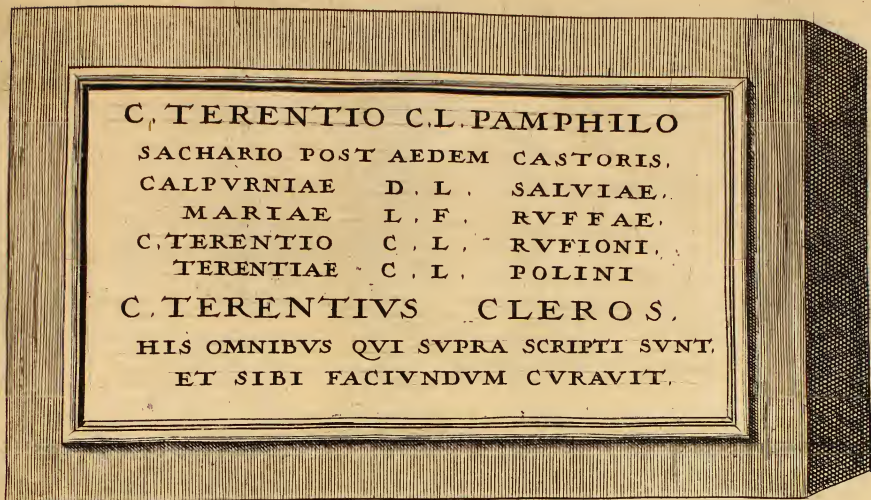 C. TERENTIO C.L. PAMPHILO
SACHARIO POST AEDEM CASTORIS.
CALPVRNIAE D. L. SALVIAE.
MARIAE L. F. RVFFAE.
C. TERENTIO C. L. RVFIONI.
TERENTIAE C. L. POLINI
C. TERENTIVS CLEROS.
HIS OMNIBVS QVI SVPRA SCRIPTI SVNT.
ET SIBI FACIVNDVM CVRAVIT.